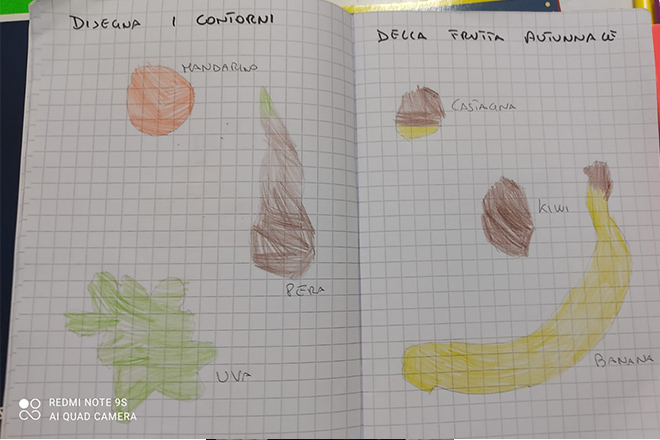 DISEGNA I CONTORNI
DELLA FRUTTA AUTUNNALE
MANDARINO
CASTAGNA
KIWI
PERA
UVA
BANANA
REDMI NOTE 9S
AI QUAD CAMERA